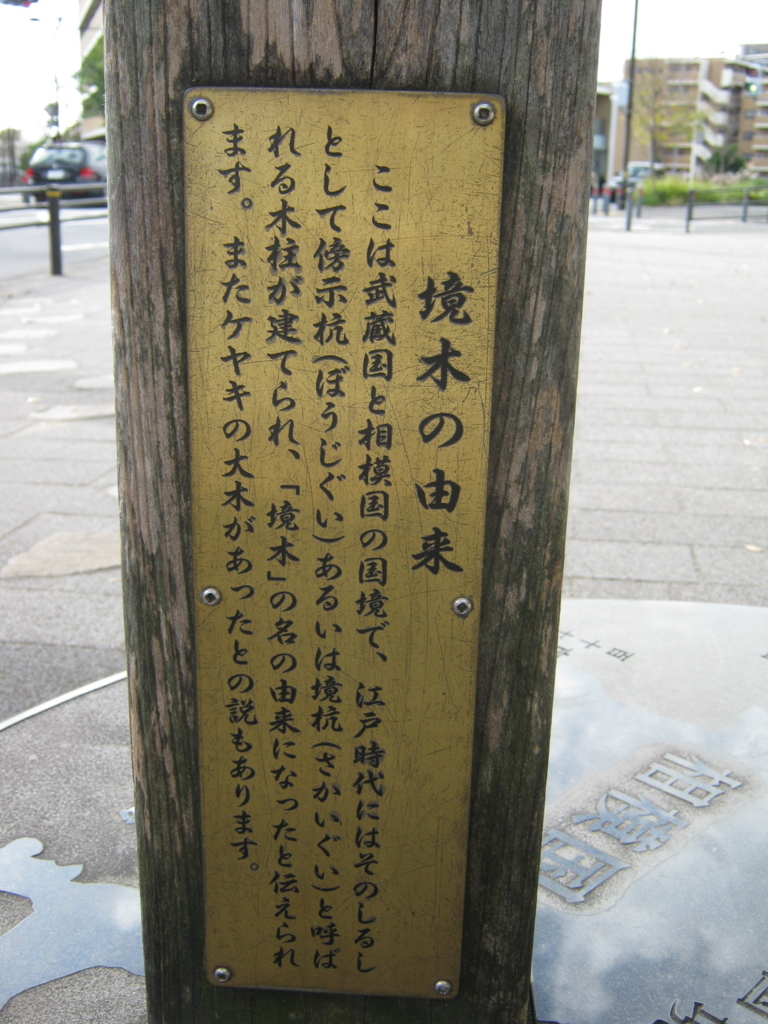 境木の由来
ここは武蔵国と相模国の国境で、江戸時代にはそのしるし
として傍示杭(ぼうじぐい)あるいは境杭(さかいぐい)と呼ば
れる木柱が建てられ、「境木」の名の由来になったと伝えられ
ます。またケヤキの大木があったとの説もあります。
相模国